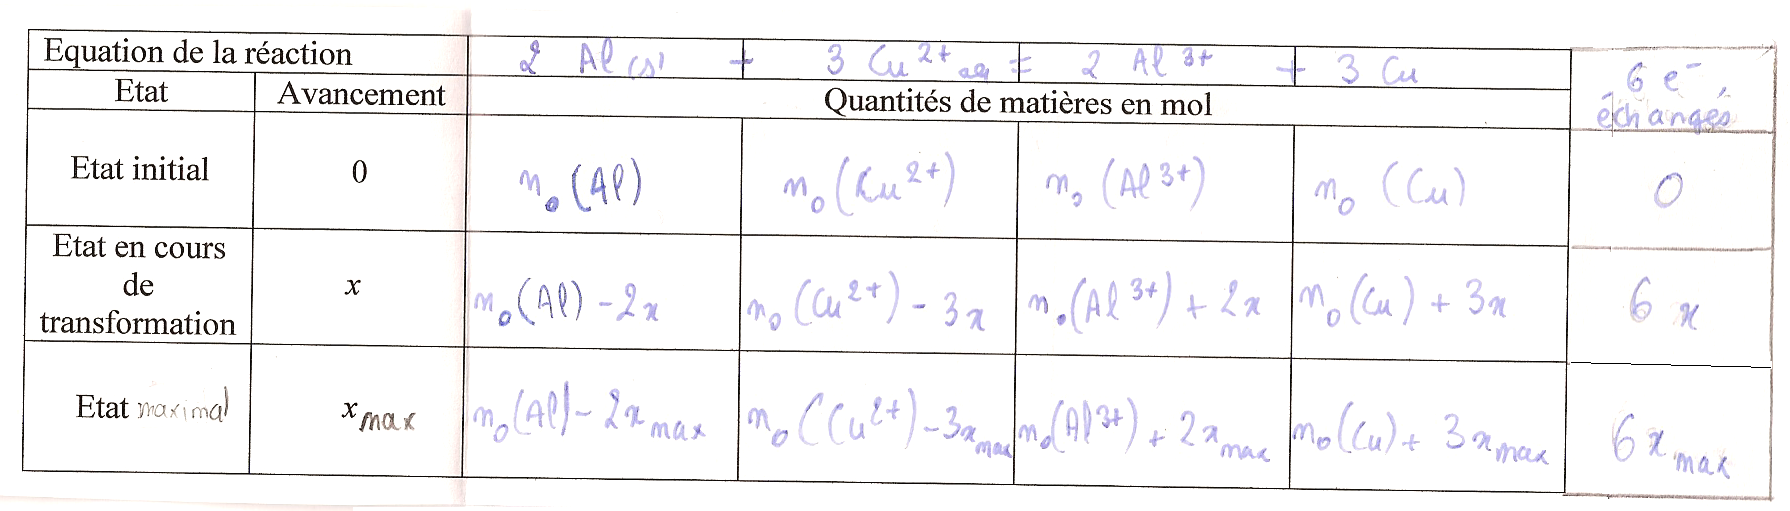 Equation de la réaction 2 Al (s) + 3 Cu²⁺ aq = 2 Al ³⁺ + 3 Cu
6 e⁻ échangés
Etat Avancement Quantités de matières en mol
Etat initial 0 n₀ (Al) n₀ (Cu²⁺) n₀ (Al³⁺) n₀ (Cu) 0
Etat en cours
de
transformation
x n₀(Al) - 2x n₀ (Cu²⁺) - 3x n₀(Al³⁺) + 2x n₀(Cu) + 3x 6 x
Etat maximal x max n₀(Al) - 2x max n₀ (Cu²⁺) - 3x max n₀(Al³⁺) + 2x max n₀(Cu) + 3x max 6 x max